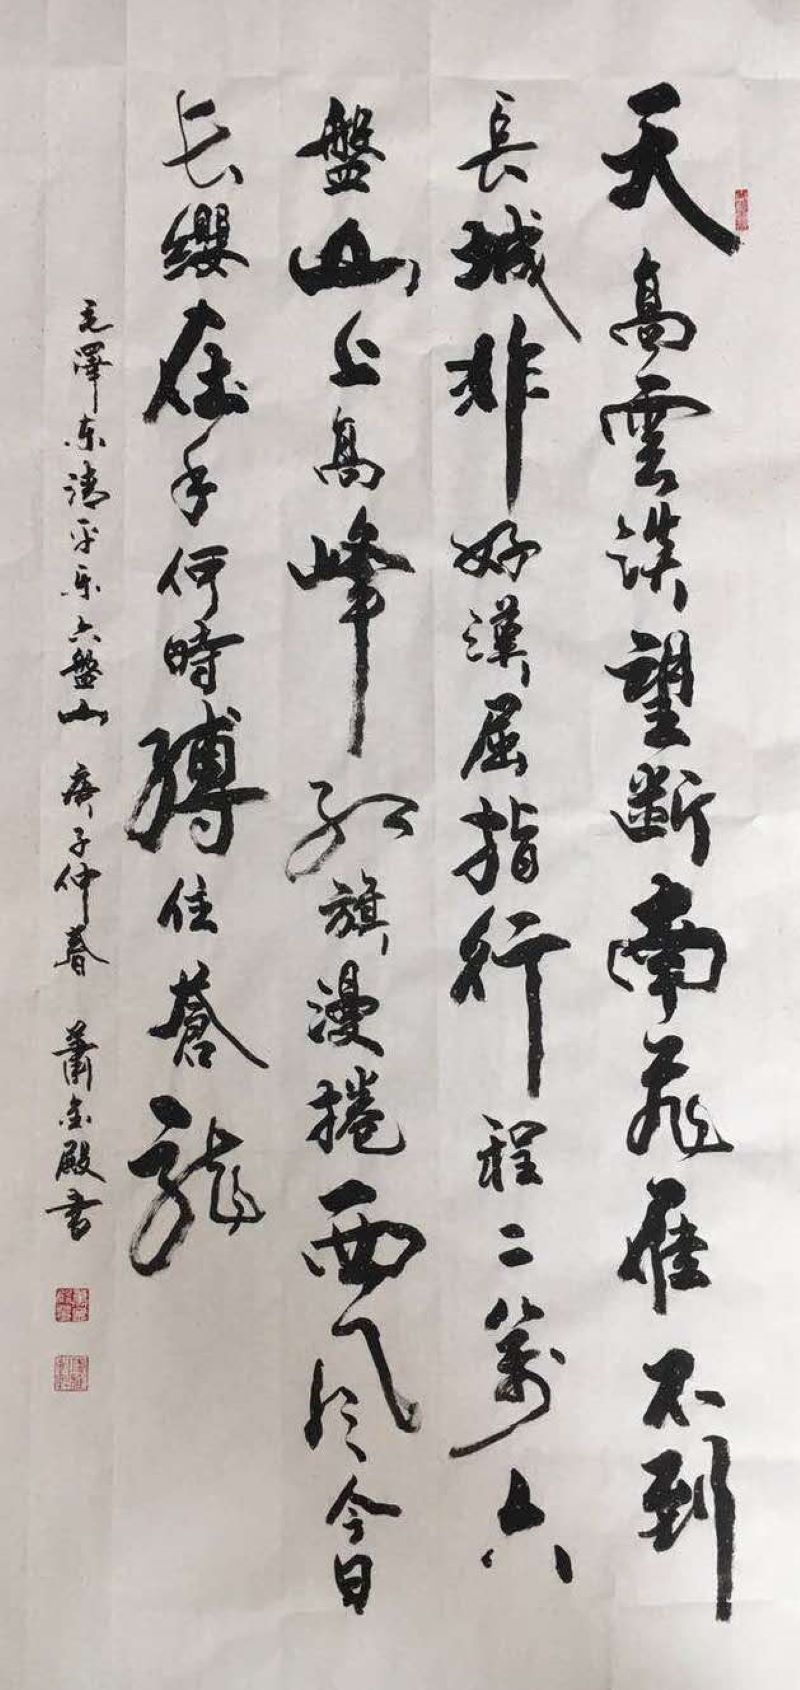 天高雲淡望斷南飛雁不到
長城非好漢屈指行程二萬六
盤山上高峰紅旗漫捲西風今日
長纓在手何時縛住蒼龍
毛澤东清平乐六盤山 庚子仲春 蕭金殿书